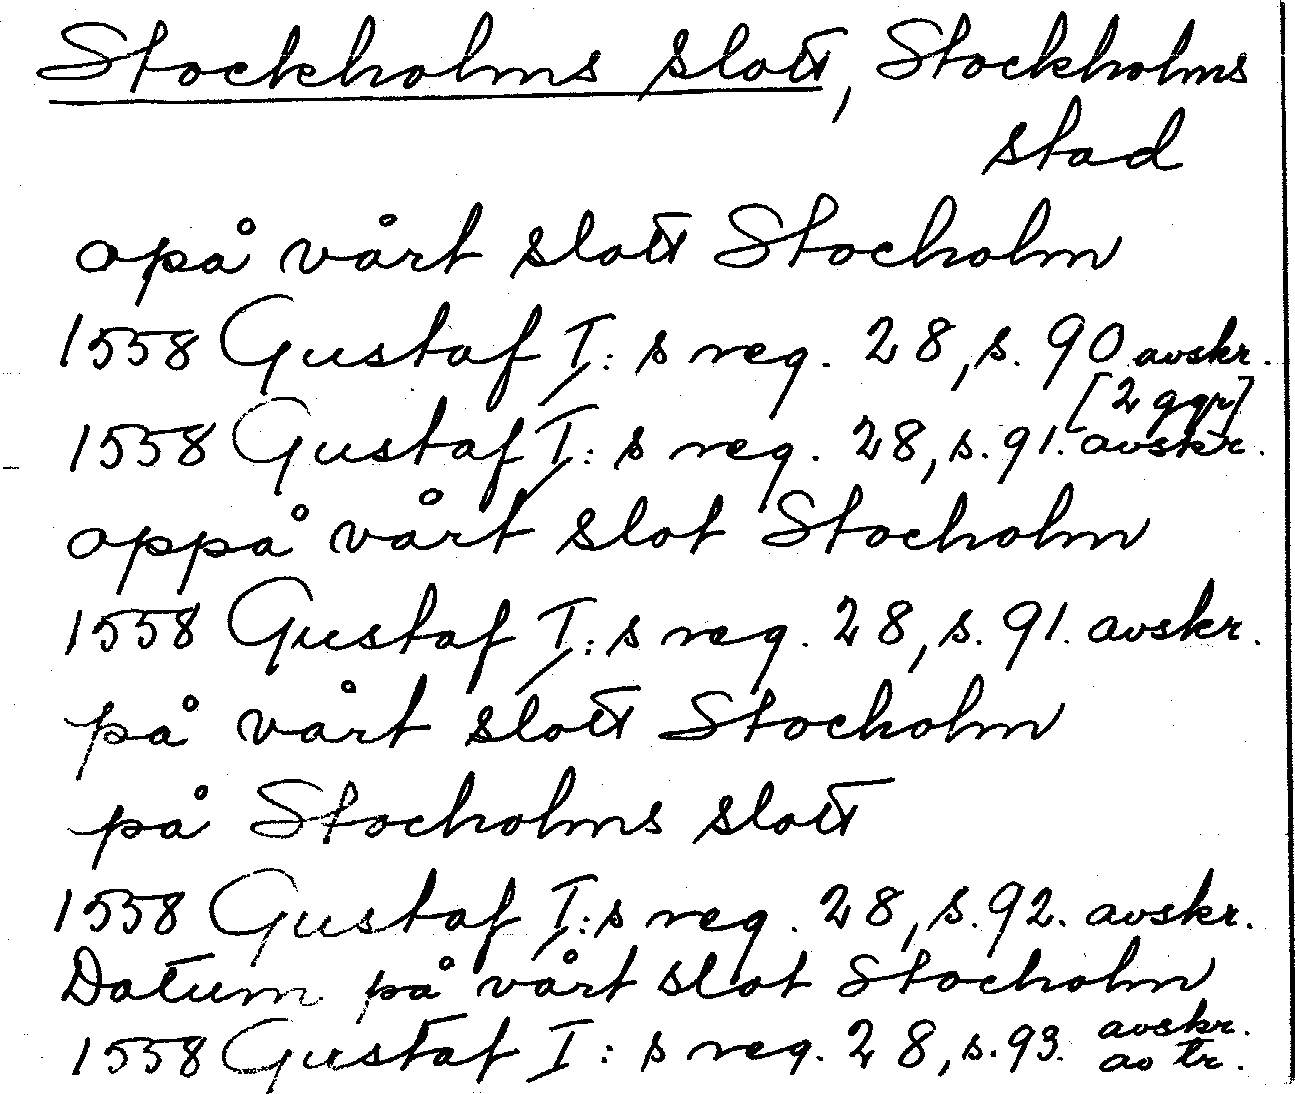 Stockholms slott, Stockholms
stad
opå vårt slott Stocholm
1558 Gustaf I:s reg. 28, s. 90 avskr.
[2 ggr]
1558 Gustaf I:s reg. 28, s. 91. avskr.
oppå vårt slot Stocholm
1558 Gustaf I:s reg. 28, s. 91. avskr.
på vårt slott Stocholm
på Stocholms slott
1558 Gustaf I:s reg. 28, s. 92. avskr.
Datum på vårt slot Stocholm
1558 Gustaf I:s reg. 28, s. 93. avskr.
av tr.